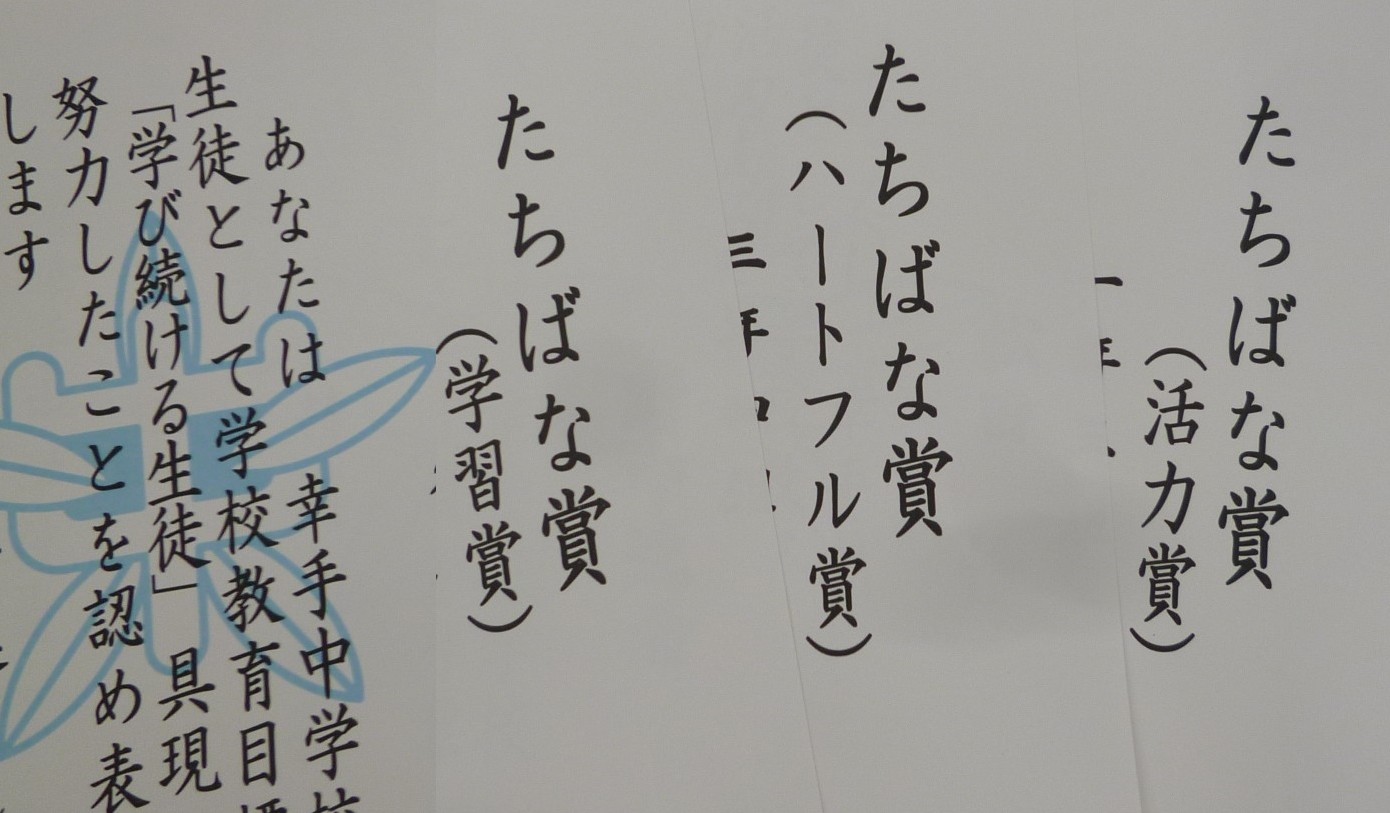 たちばな賞
（活力賞）
一年
たちばな賞
（ハートフル賞）
三年
たちばな賞
（学習賞）
あなたは 幸手中学校
生徒として学校教育目標
「学び続ける生徒」 具現
努力したことを認め表
します